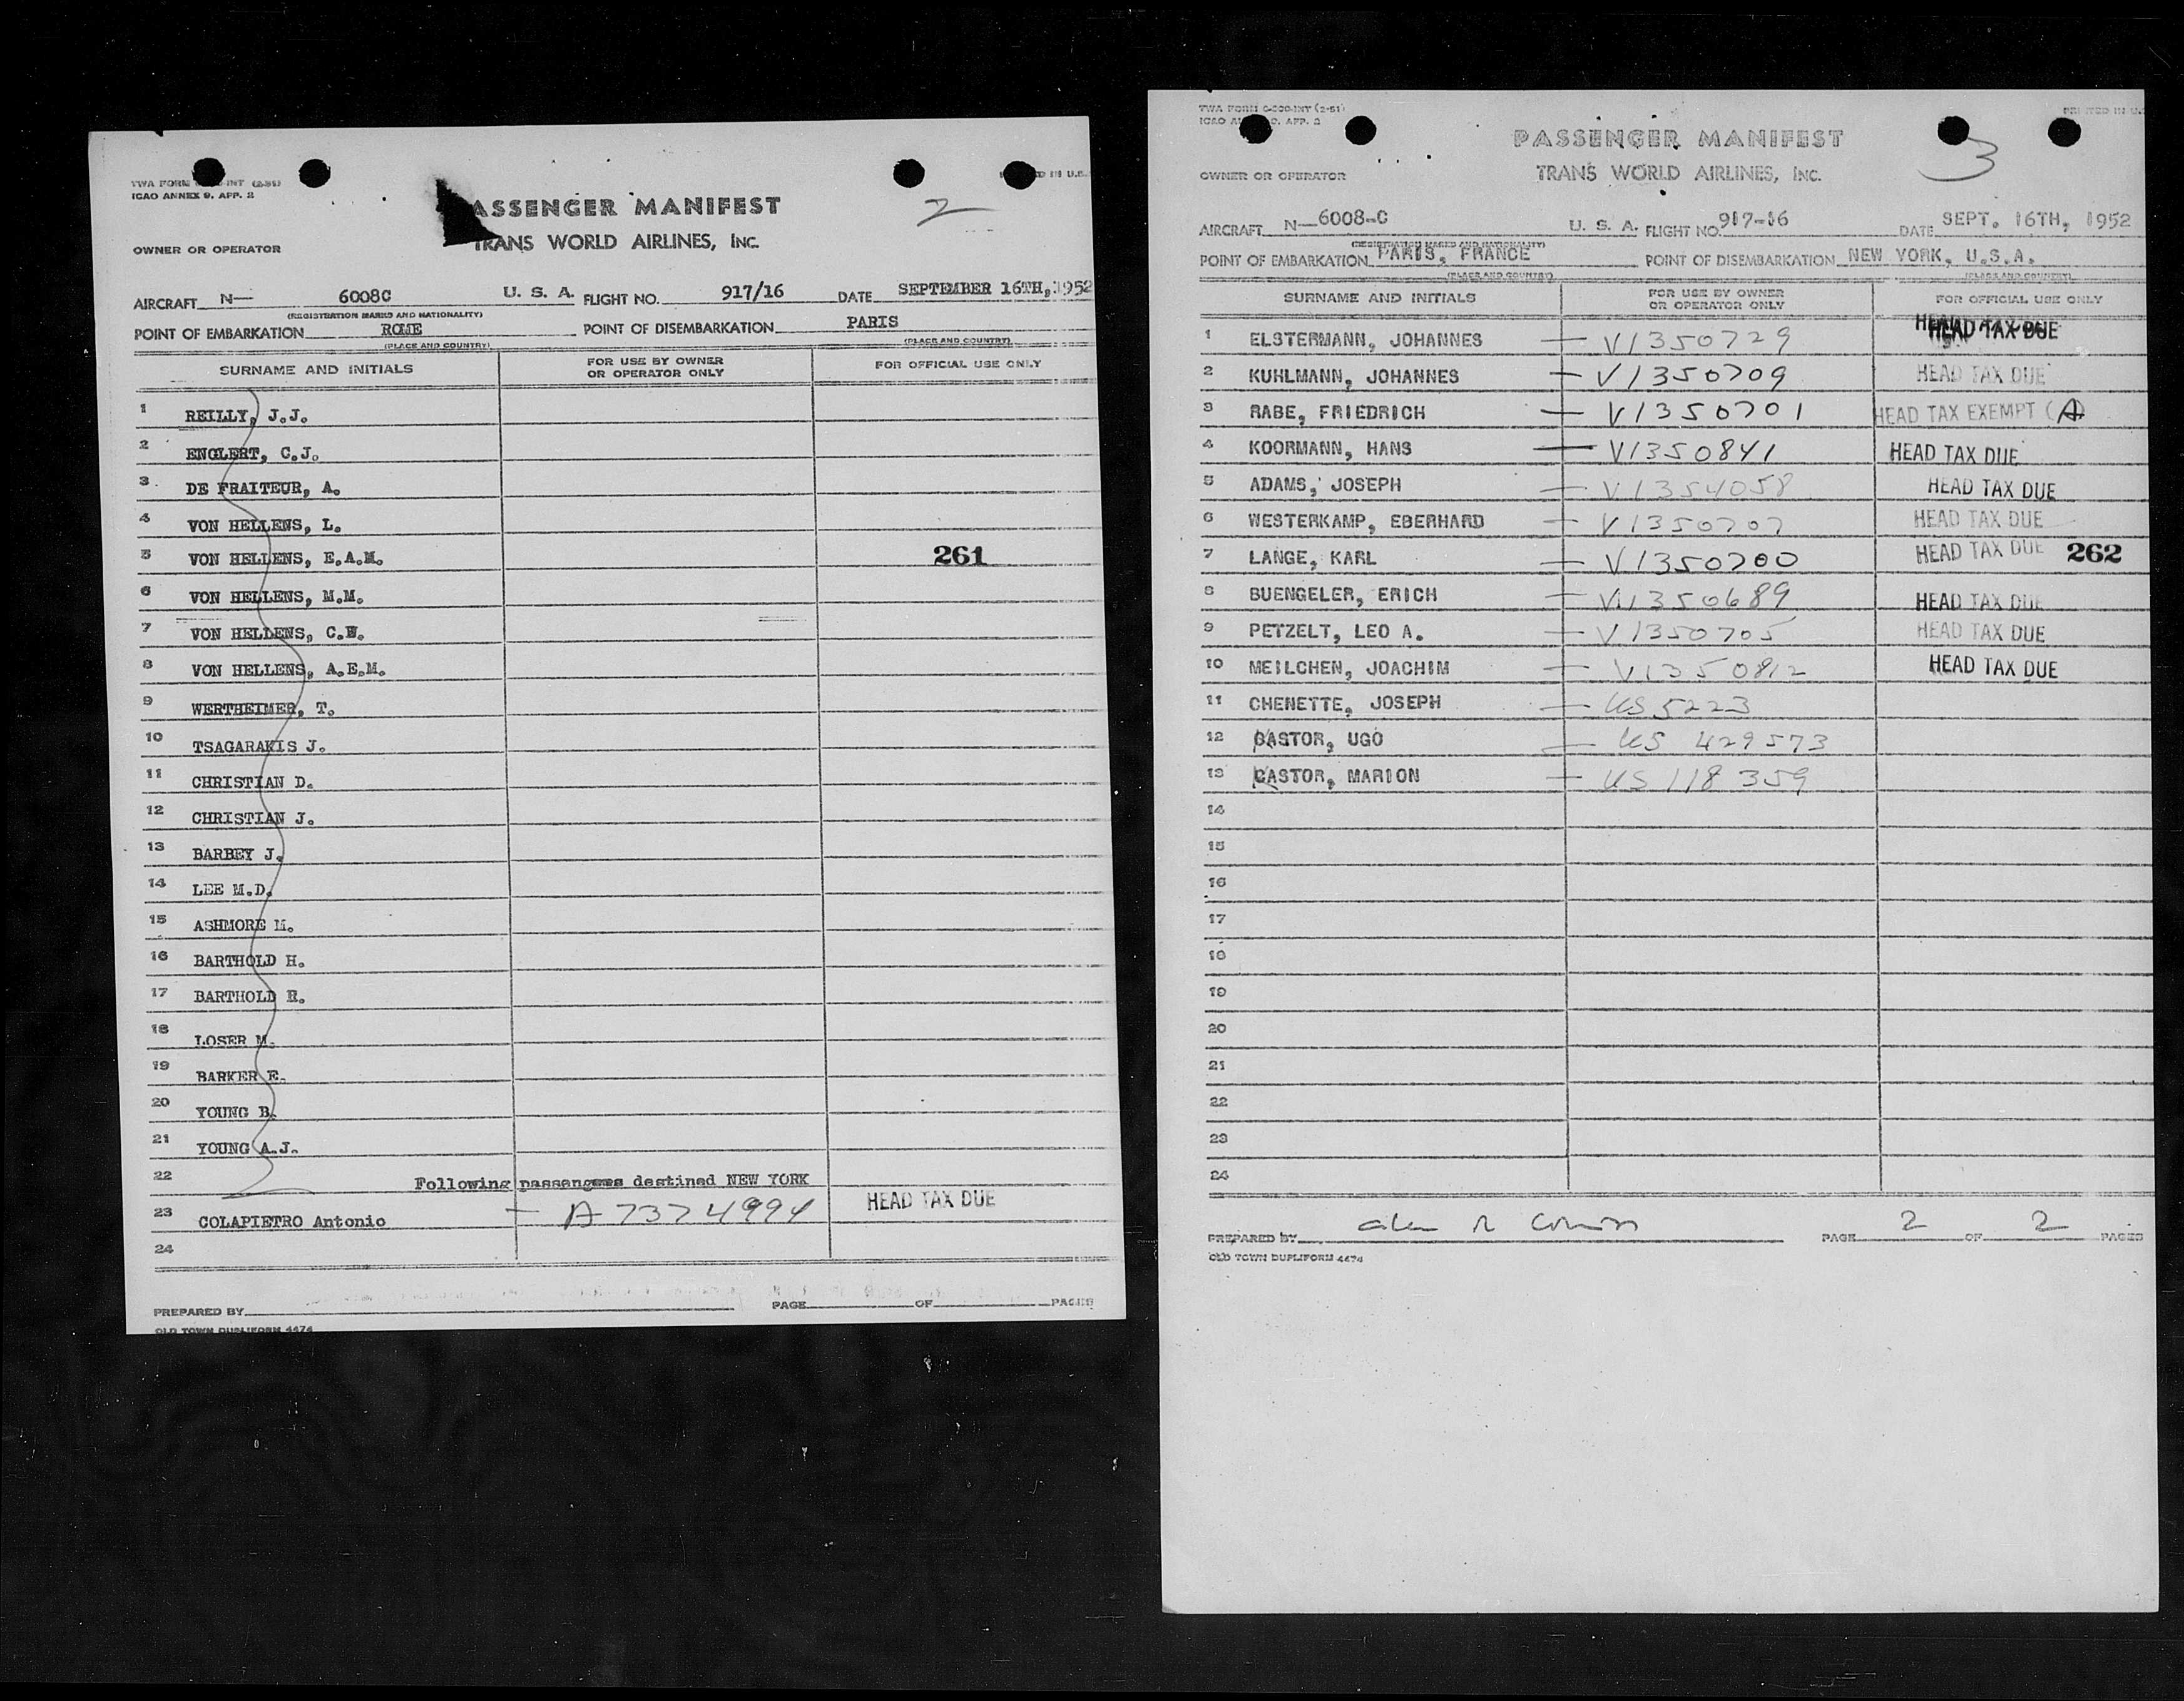 TWA FORM INT (2-51)
ICAO ANNEX 9, APP. 2
2
ASSENGER MANIFEST
TRANS WORLD AIRLINES, INC.
OWNER OR OPERATOR
AIRCRAFT N— 6008C U. S. A. FLIGHT NO. 917/16 DATE SEPTEMBER 16TH, 1952
(REGISTRATION MARKS AND NATIONALITY)
POINT OF EMBARKATION ROME POINT OF DISEMBARKATION PARIS
(PLACE AND COUNTRY) (PLACE AND COUNTRY)
SURNAME AND INITIALS FOR USE BY OWNER OR OPERATOR ONLY FOR OFFICIAL USE ONLY
1 REILLY, J.J.
2 ENGLERT, C.J.
3 DE FRAITEUR, A.
4 VON HELLENS, L.
5 VON HELLENS, E.A.M. 261
6 VON HELLENS, M.M.
7 VON HELLENS, C.E.
8 VON HELLENS, A.E.M.
9 WERTHEIMER, T.
10 TSAGARAKIS J.
11 CHRISTIAN D.
12 CHRISTIAN J.
13 BARBEY J.
14 LEE M.D.
15 ASHMORE M.
16 BARTHOLD H.
17 BARTHOLD R.
18 LOSER M.
19 BARKER E.
20 YOUNG B.
21 YOUNG A.J.
22 Following passengers destined NEW YORK
23 COLAPIETRO Antonio — A 7374994 HEAD TAX DUE
24
PREPARED BY PAGE OF PAGES
OLD TOWN DUPLIFORM 4474
TWA FORM C-300-INT (2-51)
ICAO APP. 2
PRINTED IN U.S.
3
PASSENGER MANIFEST
TRANS WORLD AIRLINES, INC.
OWNER OR OPERATOR
AIRCRAFT N—6008-C U. S. A. FLIGHT NO. 917-16 DATE SEPT. 16TH, 1952
(REGISTRATION MARKS AND NATIONALITY)
POINT OF EMBARKATION PARIS, FRANCE POINT OF DISEMBARKATION NEW YORK, U.S.A.
(PLACE AND COUNTRY) (PLACE AND COUNTRY)
SURNAME AND INITIALS FOR USE BY OWNER OR OPERATOR ONLY FOR OFFICIAL USE ONLY
1 ELSTERMANN, JOHANNES — V1350729 HEAD TAX DUE
2 KUHLMANN, JOHANNES — V1350709 HEAD TAX DUE
3 RABE, FRIEDRICH — V1350701 HEAD TAX EXEMPT (A)
4 KOORMANN, HANS — V1350841 HEAD TAX DUE
5 ADAMS, JOSEPH — V1354058 HEAD TAX DUE
6 WESTERKAMP, EBERHARD — V1350707 HEAD TAX DUE
7 LANGE, KARL — V1350700 HEAD TAX DUE 262
8 BUENGELER, ERICH — V1350689 HEAD TAX DUE
9 PETZELT, LEO A. — V1350705 HEAD TAX DUE
10 MEILCHEN, JOACHIM — V1350812 HEAD TAX DUE
11 CHENETTE, JOSEPH — US 5223
12 CASTOR, UGO — US 429573
13 CASTOR, MARION — US 118359
14
15
16
17
18
19
20
21
22
23
24
PREPARED BY PAGE 2 OF 2 PAGES
OLD TOWN DUPLIFORM 4474